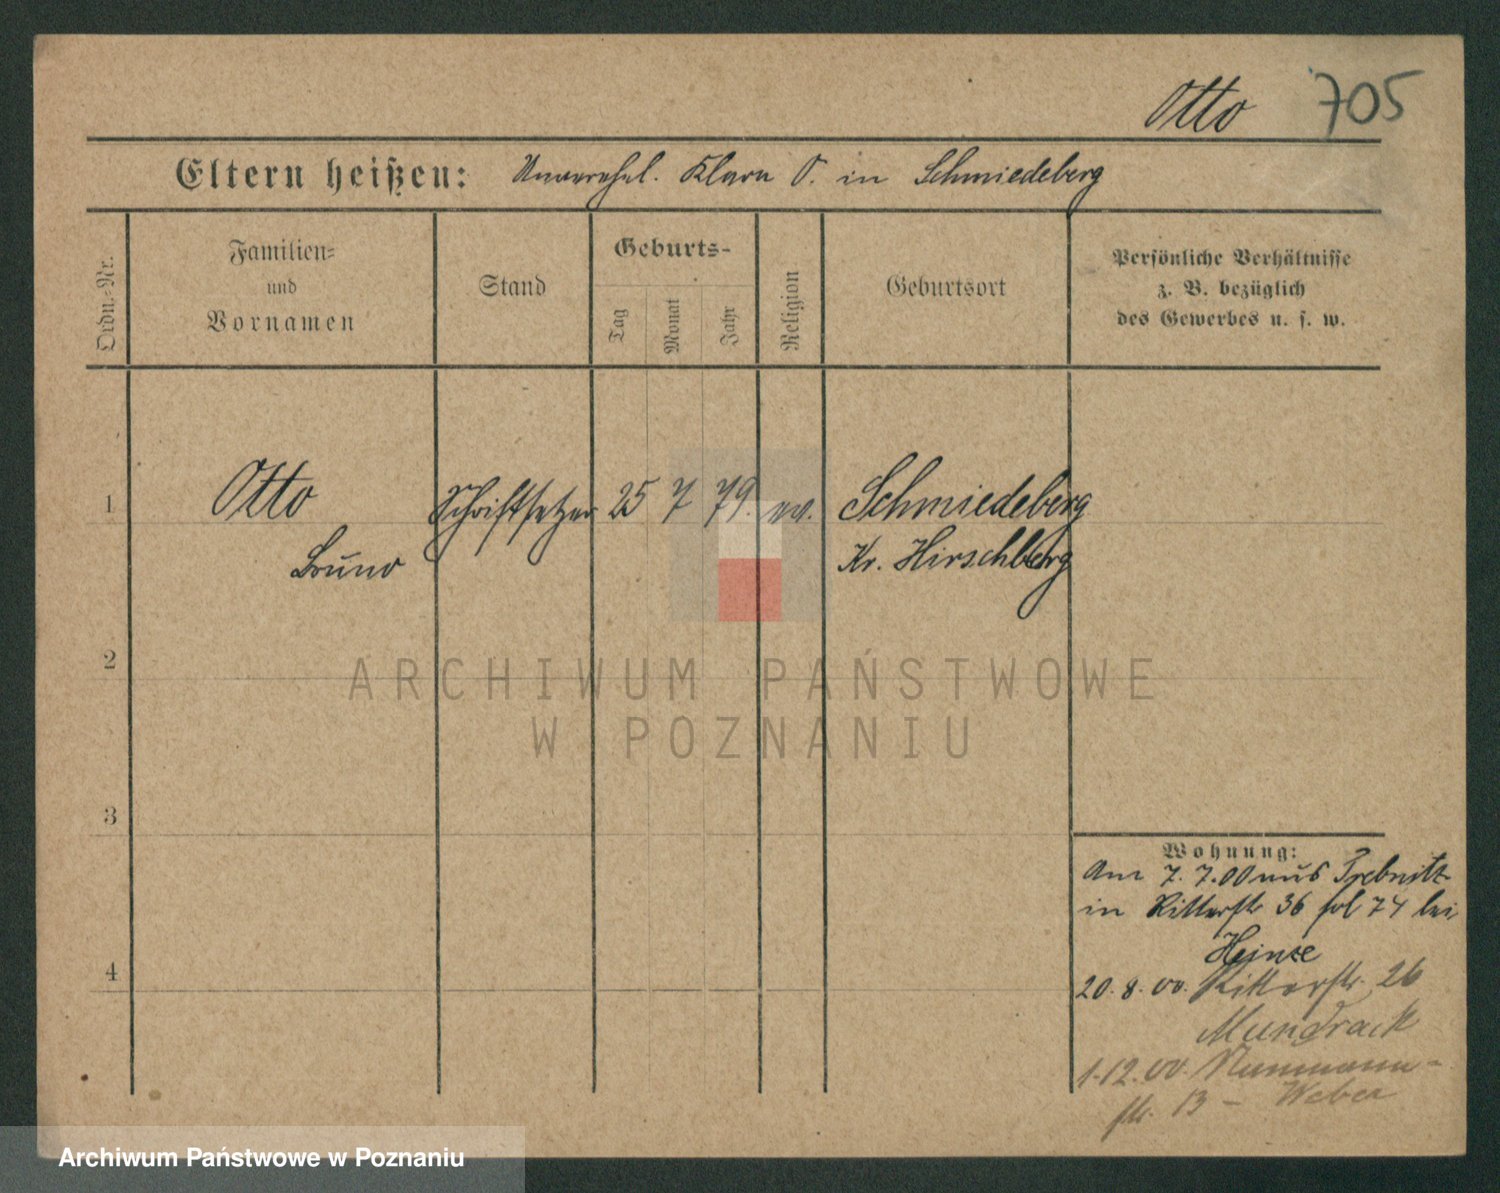 Otto 705
Eltern heißen: Unverehel. Klara O. in Schmiedeberg
Ordn.-Nr.
Familien-
und
Vornamen
Stand
Geburts-
Tag
Monat
Jahr
Religion
Geburtsort
Persönliche Verhältnisse
z. B. bezüglich
des Gewerbes u. s. w.
1 Otto Schriftsetzer 25 7 79. ev. Schmiedeberg
Bruno Kr. Hirschberg
2
3
4
Wohnung:
Am 7. 7.00 aus Trebnitz
in Ritterstr 36 bei
Heinze
20. 8. 00. Ritterstr. 26
Mundrack
1.12.00 Naumann-
str. 13 – Weber
ARCHIWUM PAŃSTWOWE
W POZNANIU
Archiwum Państwowe w Poznaniu